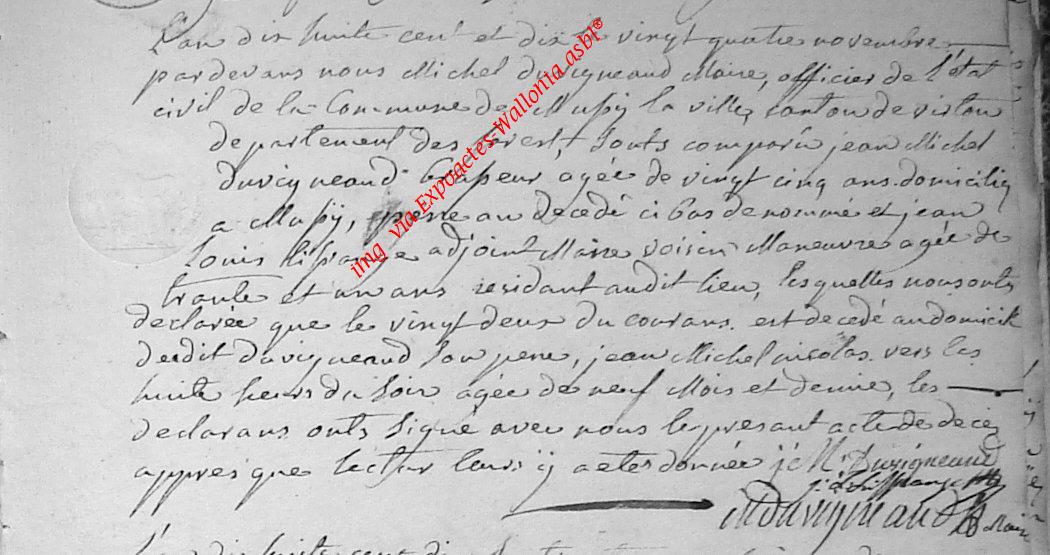 L'an dix huite cent et dix le vingt quatre novembre
pardevans nous Michel Duvigneaud Maire, officier de l'état
civil de la Commune de Mussy la ville, canton de virton
departement des forest, sonts comparu jean Michel
Duvigneaud agée de vingt cinq ans domicilié
a Mussy, pere au decedé ci bas denommé et jean
louis adjoint Maire voisin Maneuvre agée de
trante et un ans residant audit lieu, lesquelles nous onts
declarée que le vingt deux du courans est decedé au domicile
dudit duvigneaud son pere, jean Michel nicolas vers les
huite heurs du soir agée de neuf Mois et demie, les
declarans onts signé avec nous le presant acte de decez
appres que lectur leurs y a etes donnée j M Duvigneaud
MDuvigneaud Maire
L'an dix huite cent di
img via Expoactes-Wallonia asbl®